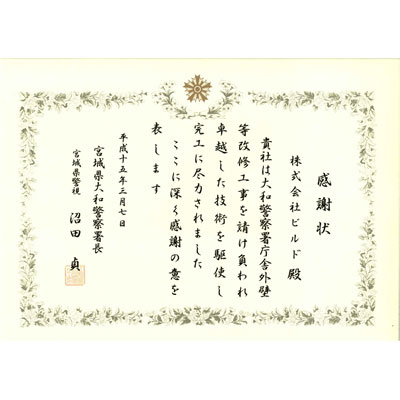 感謝状
株式会社ビルド殿
貴社は大和警察署庁舎外壁
等改修工事を請け負われ
卓越した技術を駆使し
完工に尽力されました
ここに深く感謝の意を
表します
平成十五年三月七日
宮城県大和警察署長
宮城県警視 沼田貞